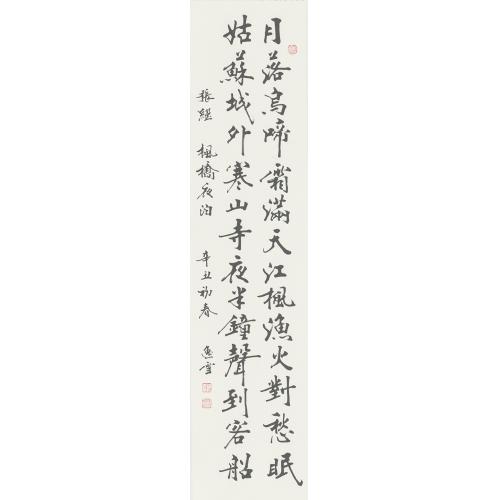 月落烏啼霜滿天江楓漁火對愁眠
姑蘇城外寒山寺夜半鐘聲到客船
張繼 楓橋夜泊 辛丑初春